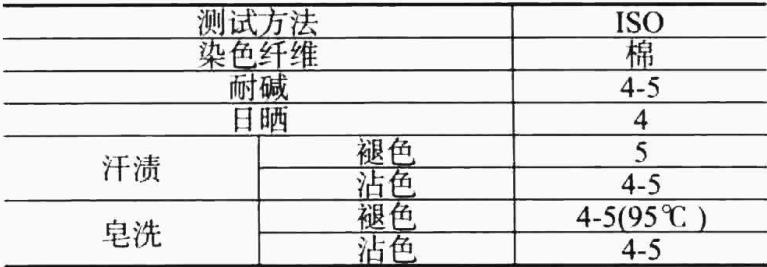 测试方法 ISO
染色纤维 棉
耐碱 4-5
日晒 4
汗渍 褪色 5
沾色 4-5
皂洗 褪色 4-5(95℃ )
沾色 4-5